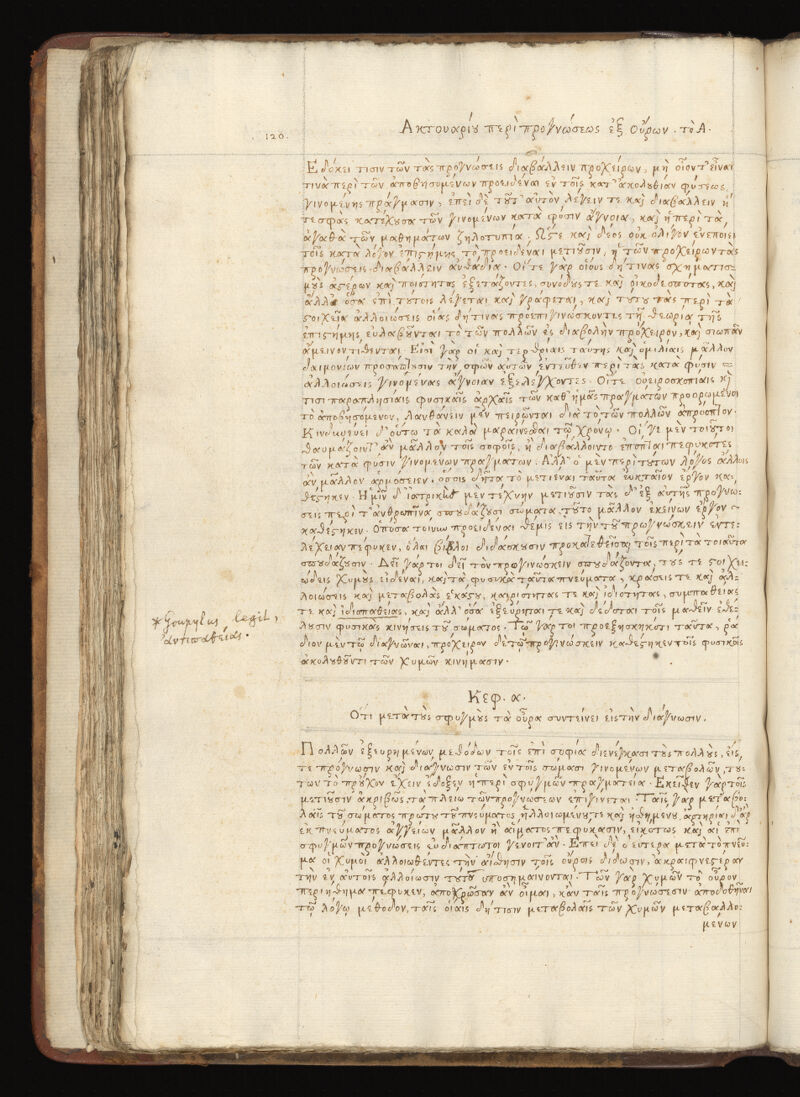 120.
Ἀκτουαρίου περὶ προγνώσεως ἐξ Οὔρων. τὸ Α.
Ἐδόκει τισιν τῶν τὰς προγνώσεις διαβάλλειν προχείρων, μὴ οἷοντ' εἶναι
τινὰ περὶ τῶν ἀποβησομένων προειδέναι ἐν τοῖς κατ' ἀκολουθίαν φύσεως
γινομένης πράγμασιν, ἐπεὶ δὲ τοῦτ' αὐτὸν λέγειν τε καὶ διαβάλλειν ἥ
τε σφᾶς κατέχουσα τῶν γινομένων κατὰ φύσιν ἄγνοια, καὶ ἡ περὶ τὰ
ἀγαθὰ τῶν μαθημάτων ζηλοτυπία. Ὥστε καὶ δέος οὐκ ὀλίγον ἐνεποίει
τοῖς κατὰ λόγον ἐπιστήμης τὸ προειδέναι μετιοῦσιν, ἡ τῶν προχείρων τὰς
προγνώσεις διαβάλλειν αὐθάδια. Οἵτε γὰρ οἵους δή τινας σχηματισ-
μοὺς ἀστέρων καὶ ποιότητας ἐξετάζοντες, συνόδους τε καὶ οἰκοδεσπότας, καὶ
ἄλλα ὅσα ἐπὶ τούτοις λέγεται καὶ γράφεται, καὶ τὰς περὶ τὰ
στοιχεῖα ἀλλοιώσεις οἵας δή τινας προεπιγινώσκοντες τῇ θεωρίᾳ τῆς
ἐπιστήμης, εὐλαβοῦνται τὸ τῶν πολλῶν ἐς διαβολὴν πρόχειρον, καὶ σιωπᾶν
ἄμεινον τίθενται. Εἰσὶ γὰρ οἳ καὶ ταύτης καὶ ὁμιλίαις μᾶλλον
δαιμονίων τὴν σφῶν αὐτῶν ἐντεῦθεν περὶ τὰς κατὰ φύσιν
ἀλλοιώσεις γινομένας ἄγνοιαν ἐξελέγχοντες. Οἵτε ὀνειροσκοπίαις κἤ
τισι παραπλησίαις φυσικαῖς ἀρχαῖς τῶν καθ' ἡμᾶς πραγμάτων προορώμενοι
τὸ ἀποβησόμενον, λανθάνειν μὲν πειρῶνται διὰ τὸ τῶν πολλῶν ἀπροσπῖον.
Κινδυνεύει δ' οὕτω τὰ καλὰ μαραίνεσθαι τῷ χρόνῳ. Οἵ γε μὲν τοιοῦτοι
θαυμάζοιντ' ἂν μᾶλλον τοῖς σοφοῖς, ἢ διαβάλλοιντο ἐπόπται πεφυκότες
τῶν κατὰ φύσιν γινομένων πραγμάτων. Ἀλλ' ὁ μὲν περὶ τούτων λόγος ἄλλοις
ἂν μᾶλλον ἁρμόσειεν. ὅσοις δῆτα τὸ μετιέναι ταῦτα ἔργον κα-
θέστηκεν. Ἡμῖν δ' ἰατρικὴν μὲν τέχνην μετιοῦσιν τὰς δ' ἐξ αὐτῆς προγνώ-
σεις περὶ τ' ἀνθρώπινα σπουδάζουσι σώματα, τοῦτο μᾶλλον ἐκείνων ἔργον
καθέστηκεν. Ὁπόσα τοίνυν προειδέναι θέμις εἰς τὴν τοῦ προγινώσκειν ἐντε-
λέχειαν πέφυκεν, ὅλαι βίβλοι διδάσκουσιν προκαλεθεῖσαι τοῖς περὶ τὰ τοιαῦτα
σπουδάζουσιν. Δεῖ γάρ τοι δεῖ τὸν προγινώσκειν σπουδάζοντα, τούς τε στοιχει-
ώδεις χυμοὺς εἰδέναι, καὶ τὰ φυσικὰ ταῦτα πνεύματα, κράσεις τε καὶ ἀλ-
λοιώσεις καὶ μεταβολὰς ἑκάστου, καιριότητάς τε καὶ ἰδιότητας, συμπαθείας
τε καὶ ἰδισπαθείας, καὶ ἄλλ' ὅσα ἐξεύρηταί τε καὶ δέδοται τοῖς μαθεῖν ἐθέ-
λουσιν φυσικὰς κινήσεις τοῦ σώματος. Τῷ γάρ τοι προεξησκηκότι ταῦτα, ῥά
διον μὲν τῷ διαγνῶναι, πρόχειρον δὲ τῷ προγινώσκειν καθέστηκεν τοῖς φυσικοῖς
ἀκολουθοῦντι τῶν χυμῶν κινήμασιν.
* Goupylus legit,
ἀντιπαθείας.
Κεφ. α.
Ὅτι μετὰ τοὺς σφυγμοὺς τὰ οὖρα συντείνει εἰς τὴν διάγνωσιν.
Πολλῶν ἐξευρημένων μεθόδων τοῖς ἐπὶ σοφίᾳ διενέγκασι τοὺς πολλοὺς, εἴς
τε πρόγνωσιν καὶ διάγνωσιν τῶν ἐν τοῖς σώμασι γινομένων μεταβολῶν, τού-
των τὸ προὖχον ἔχειν ἔδοξεν ἡ περὶ σφυγμῶν πραγματεία. Ἐκεῖθεν γὰρ τοῖς
μετιοῦσιν ἀκριβῶς, τὰ πλείω τῶν προγνώσεων ἐπιγίνεται. Ταῖς γὰρ μεταβο-
λαῖς τοῦ σώματος πρώτου τοῦ πνεύματος ἠλλοιωμένου τε καὶ ἡδημένου, ἀρτηρίαι δ' ἄρ'
ἐκ πνεύματος ἀγγείων μᾶλλον ἢ αἵματος πεφύκασιν, εἰκότως καὶ αἱ ἐπὶ
σφυγμῶν προγνώσεις εὐδιάπτωτοι γένοιτ' ἄν. Ἐπεὶ δὲ δεύτερα μετὰ τὸ πνεῦ-
μα οἱ χυμοὶ ἀλλοιωθέντες τὴν αἴσθησιν τοῖς οὔροις δίδωσιν, ἀκραιφνεστέραν
τὴν ἐν αὐτοῖς ἀλλοίωσιν τοῦτο ὑποσημαίνονται. Τῶν γὰρ χυμῶν τὸ οὖρον
περιήθημα πέφυκεν, ἀποχρῶσαν ἂν οἶμαι, κἂν ταῖς προγνώσεσιν ἀποδοθῆναι
τῷ λόγῳ μέθοδον, ταῖς οἵαις δή τισιν μεταβολαῖς τῶν χυμῶν μεταβαλλο-
μένων